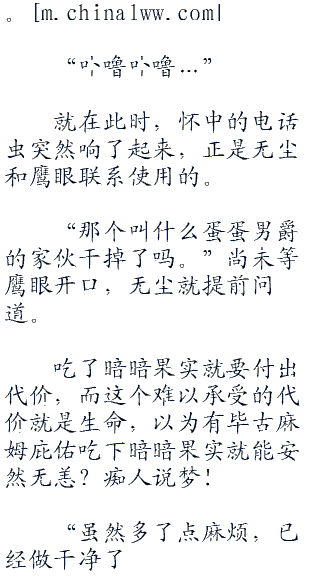 。[m.china1ww.com]
“卟噜卟噜…”
就在此时，怀中的电话
虫突然响了起来，正是无尘
和鹰眼联系使用的。
“那个叫什么蛋蛋男爵
的家伙干掉了吗。”尚未等
鹰眼开口，无尘就提前问
道。
吃了暗暗果实就要付出
代价，而这个难以承受的代
价就是生命，以为有毕古麻
姆庇佑吃下暗暗果实就能安
然无恙？痴人说梦！
“虽然多了点麻烦，已
经做干净了